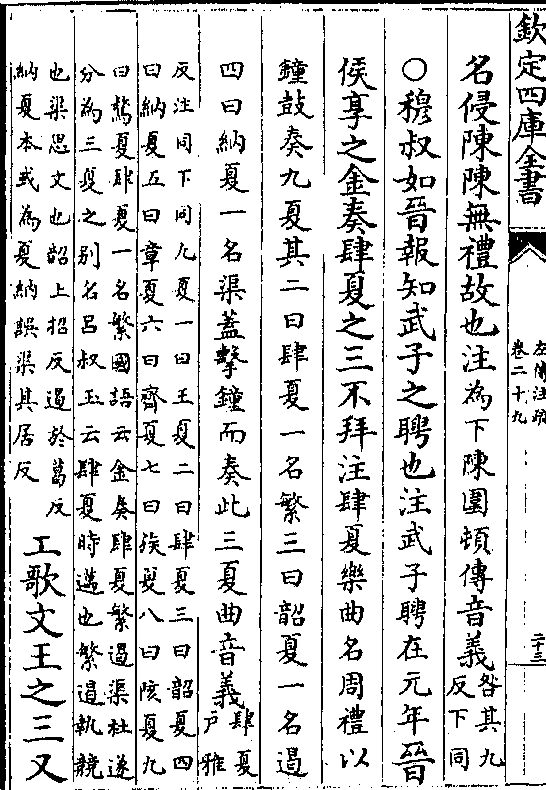 欽定四庫全書
左傳注疏
卷二十九
二十三
名侵陳陳無禮故也注為下陳圍頓傳音義咎其九
反下同
○穆叔如晉報知武子之聘也注武子聘在元年晉
侯享之金奏肆夏之三不拜注肆夏樂曲名周禮以
鐘鼓奏九夏其二曰肆夏一名繁三曰韶夏一名遏
四曰納夏一名渠蓋擊鐘而奏此三夏曲音義肆夏
戶雅
反注同下同九夏一曰王夏二曰肆夏三曰韶夏四
曰納夏五曰章夏六曰齊夏七曰族夏八曰陔夏九
曰驁夏肆夏一名繁國語云金奏肆夏繁遏渠杜遂
分為三夏之别名呂叔玉云肆夏時邁也繁遏執競
也渠思文也韶上招反遏於葛反
納夏本或為夏納誤渠其居反
工歌文王之三又